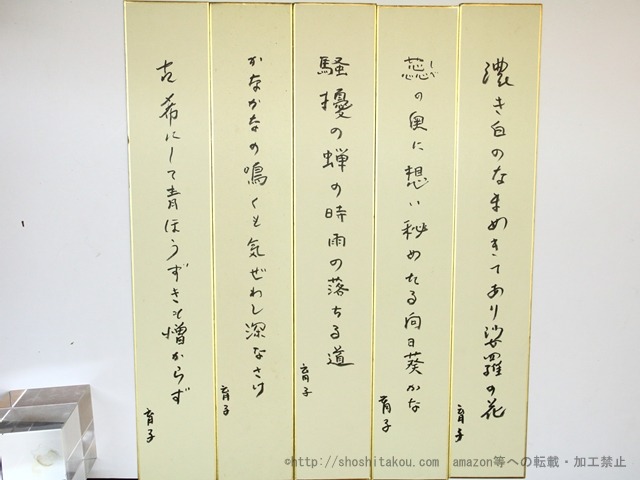 濃き白のなまめきてあり沙羅の花
育子
蕊の奥に想い秘めたる向日葵かな
しべ
育子
騒擾の蝉の時雨の落ちる道
育子
かなかなの鳴くも気ぜわし深なさけ
育子
古希にして青ほうずきも憎からず
育子
©http://shoshitakou.com amazon等への転載・加工禁止